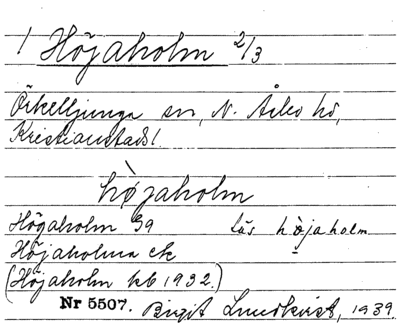 1 Höjaholm 2/3
Örkelljunga sn, N. Åsbo hd,
Kristianstads l.
hòjaholm
Högaholm 59 läs hòjaholm
Höjaholma ek
(Höjaholm kb 1932.)
Nr 5507. Birgit Lundkvist, 1939.